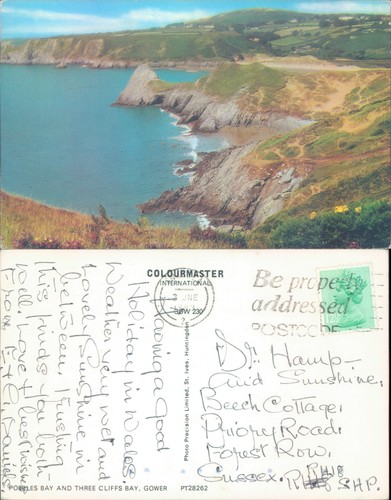 COLOURMASTER
INTERNATIONAL
Be properly
addressed
POSTCODE
JNE
Photo Precision Limited, St. Ives, Huntingdon
Having a good
Holiday in Wales.
Weather very wet and
Lovely Sunshine in
between, trusting
this finds you both
well. Love & best wishes
From
Hamp-
and Sunshine,
Beech Cottage,
Priory Road,
Forest Row,
Sussex.
RH18
SHP.
POBBLES BAY AND THREE CLIFFS BAY, GOWER
PT28262